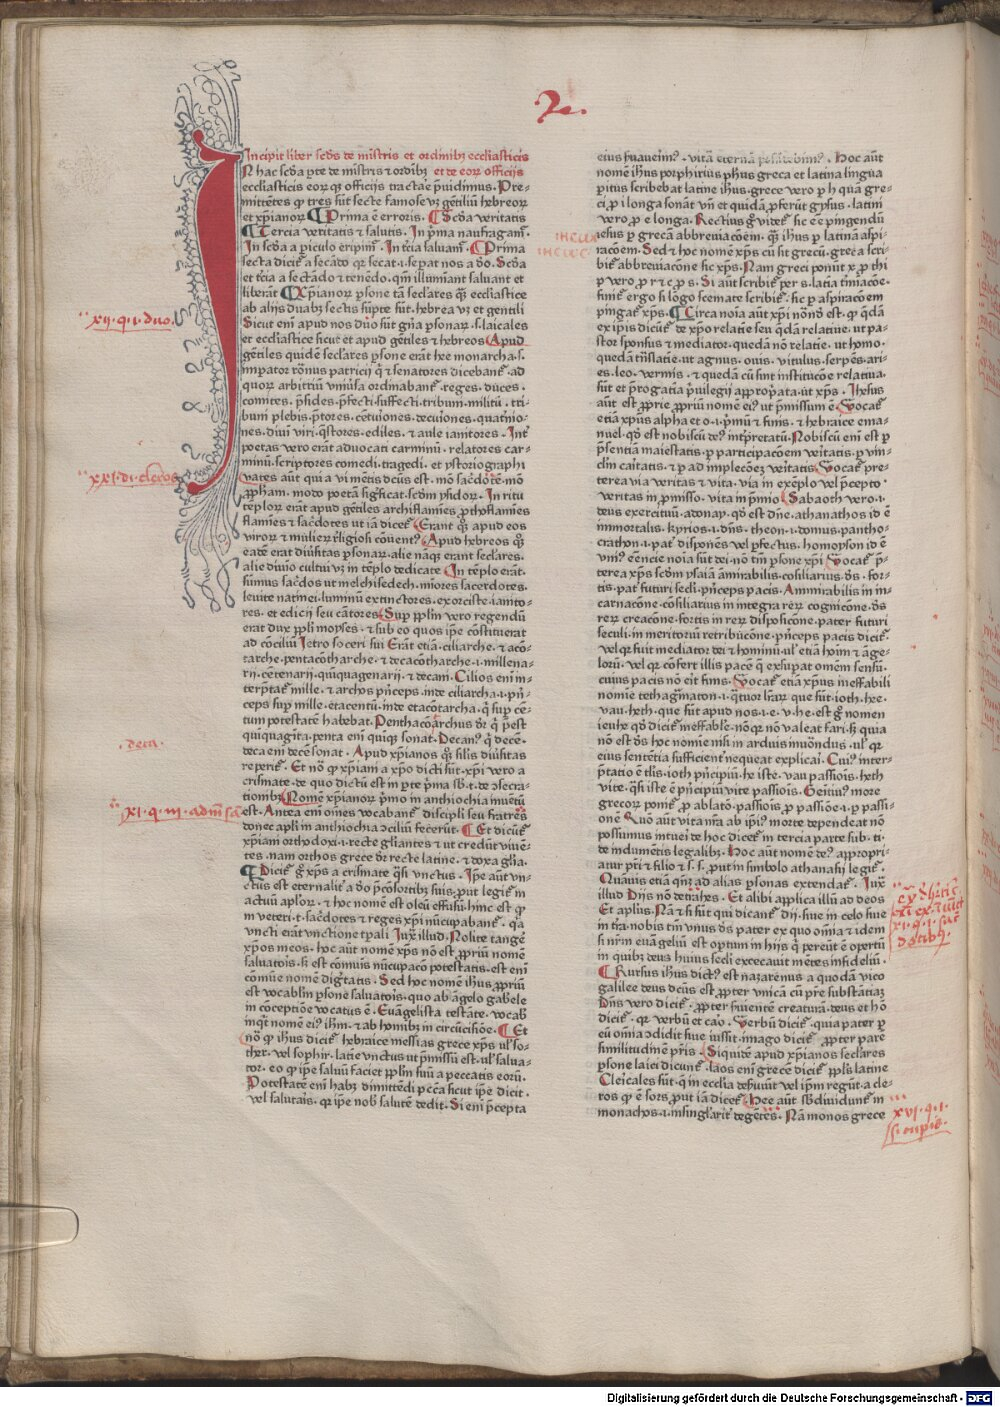 .2.
Incipit liber scđs de mīstris et ordinibȝ eccliasticis
IN hac scđa ꝑte de mīstris ⁊ ordībȝ et de eoꝝ officijs
eccliasticis eorꝝ qȝ officijs tractare ꝓuidimus. Pre-
mittētes ꝙ tres sūt secte famose vȝ gētiliū hebreoꝝ
et xp̄ianoꝝ Prima ē erroris. Scđa veritatis
Tercia veritatis ⁊ salutis. In pͥma naufragam᷒
In scđa a piculo eripim᷒. In tͨcia saluam᷒. Prima
secta dicit᷑ a secādo qꝛ secat .i. sepat nos a đo. Scđa
et tͨcia a sectādo ⁊ tenēdo. qm̄ illumīant saluant et
liberāt Xp̄ianoꝝ ꝑsone tā seclares qȝ ecclīastice
ab alijs duabȝ sectis sūpte sūt. hebrea vȝ et gentili
Sicut em̄ apud nos duo sūt gn̄a ꝑsonaꝝ .s. laicales
et eccliastice sicut et apud gētiles ⁊ hebreos Apud
gētiles quidē seclares ꝑsone erāt hee monarcha .s.
imꝑator rōnus patricii q̄ ⁊ senatores dicebant᷑ . ad
quoꝝ arbitriū vniūsa ordinabant᷑ . reges . duces .
comites . p̄sides . p̄fecti . suffecti . tribuni militū . tri-
buni plebis . p̄tores . cēturiones . decuriones . quatrnio-
nes . diuū viri . q̄stores . ediles . ⁊ aule ianitores . Int᷑
poetas vero erāt aduocati carminū . relatores car-
minū . scriptores comedi . tragedi . et ystoriographi
vates aūt qui a vi mētis dcūs est . mō sac̄dotē . mō
ꝓpham . modo poetā sigficat . scđm ysidoꝝ . In ritu
tēploꝝ erāt apud gētiles archiflamīes ꝓthoflamīes
flamīes ⁊ sac̄dotes ut iā dicet᷑ Erant qȝ apud eos
viroꝝ ⁊ mulieꝝ religiosi cōuent᷒ Apud hebreos qȝ
eadē erat diūsitas ꝑsonaꝝ . alie nāqȝ erant seclares .
alie diuīo cultui vȝ in tēplo dedicate In tēplo erāt .
sūmus sac̄dos ut melchisedech . mīores sacerdotes .
leuite natinei . luminū extinctores . exorciste . ianito-
res . et editui seu cātores . Suꝑ ꝓplm vero regendū
erat dux ꝓpli moyses . ⁊ sub eo quos ip̄e cōstituerat
ad cōciliū Jetro soceri sui Erāt etiā . ciliarche . ⁊ acō-
tarche . pentacōtharche . ⁊ decacōtharche .i. millena-
rii . cētenarii . quīquagenarii . ⁊ decani . Cilios eni̅ in-
terp̄tat᷑ mille . ⁊ archos p̄nceps . inde ciliarcha .i. p̄n-
ceps suꝑ mille . ētacentū . inde etacōtarcha . q̄ suꝑ cē-
tum potestatē habebat . Penthacōarchus đr q̄ p̄est
quīquagita . penta eni̅ quīqȝ sonat . Decan᷒ q̄ decē .
deca eni̅ decē sonat . Apud xp̄ianos qȝ silis diūsitas
reperit᷑ . Et nō̄ ꝙ xp̄iani a xp̄o dicti sūt . xp̄i vero a
crismate . de quo dictū est in ꝑte pͥma sb̄ t̄ . de ꝯsecra-
tionibȝ . Nomē xp̄ianoꝝ pͥmo in anthiochia inuētū
est . Antea em̄ oēs vocabant᷑ discipli seu fratres
donec apli in anthiochia ꝯciliū fecerūt . Et dicūt᷑
xp̄iani orthodoxi .i. recte gliantes ⁊ ut credūt viuē-
tes . nam orthos grece đr recte latine . ⁊ doxa glīa .
Dicit᷑ ḡ xp̄s a crismate qͣsi vnctus . Ip̄e aūt vn-
ctus est eternalit᷑ a đo p̄ cōsortibȝ suis . put legit᷑ in
actuū aploꝝ . ⁊ hoc nomē est oleū effusū . hinc est ꝙ
in veteri .t. sac̄dotes ⁊ reges xp̄i nūcupabant᷑ . qꝛ
vncti erāt vnctione tꝑali Juxͣ illud . Nolite tangē
xp̄os meos . hoc aūt nomē xp̄s nō est ꝓprium nomē
saluatoris . sȝ est cōmuīs nūcupacō potestatis . est eni̅
cōmūe nomē digītatis . Sed hoc nomē ihūs ꝓpriū
est vocablm ꝑsone saluatoris . quo ab āgelo gabͥele
in cōceptiōe vocatus ē . Euāgelista testāte . vocab᷑
inqͭ nomē ei᷒ ihm̄ . ⁊ ab homībȝ in circūcisiōe . Et
nō̄ ꝙ ihūs dicit᷑ hebraice messias grece xp̄s ul᷑ so-
ther . vel sophir . latīe vnctus ut p̄missū est . ul᷑ salua-
tor . eo ꝙ ip̄e saluū faciet ꝓplm suū a peccatis eoꝝ .
Potestatē eni̅ habȝ dimittēdi pc̄cā sicut ip̄e dicit .
vel salutaīs . qꝛ ip̄e nob᷒ salutē dedit . Si em̄ p̄cepta
eius suauerim᷒ . vitā eternā possidebim᷒ . Hoc aūt
nomē ihūs porphirius ꝓphūs greca et latina lingua
ꝑitus scribebat latine ihūs . grece vero p h quā gre-
ci . p i longa sonāt vn̄ et quidā ꝓferūt gysus . latini
vero . p e longa . Rectius ḡ videt᷑ sic eē pīngendū
iesus p grecā abbreuiacōem . qȝ ihus p latinā aspi-
racōem . Sed ⁊ hoc nomē xp̄s cū sit grecū . grece scri-
bit᷑ abbreuiacōne sic xp̄s . Nam greci ponūt x p chi
p vero . p r ⁊ c p s . Si aūt scribit᷑ per s . latīa tīmacōe .
finit᷑ ergo si lōgo sceinate scribit᷑ . sic p aspiracōem
pingat᷑ xp̄s . Circa noīa aūt xp̄i nōnđ est . ꝙ qͣdā
ex ip̄is dicūt᷑ de xp̄o relatīe seu qͣdā relatiue . ut pa-
stor sponsus ⁊ mediator . quedā nō relatīe . ut homo .
quedā tn̄slatīe ut agnus . ouis . vitulus . serpēs . ari-
es . leo . vermis . ⁊ quedā cū sint institucōe relatiua .
sūt et ꝓrogatīa p̄uilegii appropͥata . ut xp̄s . Ihesus
aūt est ꝓprie ꝓpriū nomē ei᷒ ut p̄missum ē . Vocat᷑
etiā xp̄us alpha et o .i. pͥmū ⁊ finis . ⁊ hebraice ema-
nuel . qđ est nobiscū de᷒ int᷑pretatū . Nobiscū eni̅ est p
p̄sentiā maiestatis . p participacōem veͥtatis . p vin-
clm caͥtatis . ⁊ p ad implecōeȝ veͥtatis Vocat᷑ pre-
terea via veritas ⁊ vita . via in exēplo vel p̄cepto
veritas in ꝓmisso . vita in p̄mio . Sabaoth vero .i.
deus exercituū . adonay . qđ est dn̄e . athanathos id ē
immortalis . kyrios .i. dn̄s . theon .i. domus . pantho-
crathon .i. pat᷑ disponēs vel ꝓfectus . homopson id ē
vni᷒ eēncie noīa sūt dei . nō tm̄ ꝑsone xp̄i Vocat᷑ p̄-
terea xp̄s scđm ysaiā āmirabilis . cōsiliarius . đs . for-
tis . pat᷑ futuri secli . p̄nceps pacis . Ammirabilis in in-
carnacōne . cōsiliarius in integra reꝝ cognicōne . đs
reꝝ creacōne . fortis in reꝝ disposicōne . pater futuri
seculi . in meritoꝝ retribucōne . p̄nceps pacis dicit᷑
vel qꝛ fuit mediator dei ⁊ hominū . ul᷑ etiā hoīm ⁊ āge-
lorū . vel qꝛ cōfert illis pacē q̄ exsuꝑat omēm sensū .
cuius pacis nō erit finis . Vocat᷑ etiā xp̄us ineffabili
nomie tethagͣmaton .i. q̄tuor lr̄aꝝ que sūt . ioth . he .
vau . heth . que sūt apud nos .i. e . v . he . est ḡ nomen
ieuhe qđ dicit᷑ ineffable . nō qꝛ nō valeat fari . sȝ quia
nō est đs hoc nomie nisi in arduis inuōndus . ul᷑ qꝛ
eius sententia sufficient᷑ nequeat explicai . Cui᷒ inter-
p̄tatio ē tlis . ioth p̄ncipiū . he iste . vau passiōis . heth
vite . qͣsi iste ē p̄ncipiū vite passiois . Genitu᷒ more
grecoꝝ ponit᷑ . p ablatō . passiois . p a passiōe .i. p passi-
onē Quō aūt vita nr̄a ab ip̄i᷒ morte dependeat nō
possumus intuei de hoc dicet᷑ in tercia parte sub .ti.
de indumētis legalibȝ . Hoc aūt nomē de᷒ appropri-
atur pͣri ⁊ filio ⁊ s . s . put in simbolo athanasij legit᷑ .
Quāuis etiā qn̄qȝ ad alias ꝑsonas extendat᷑ . Juxͣ
illud Dīs nō detrahes . Et alibi applica illū ad deos
Et aplus . Nā ⁊ si sūt qui dicant᷑ dij . siue in celo siue
in tr̄a . nobis tm̄ vnus đs pater ex quo om̄ia ⁊ idem
si nr̄m euāgeliū est optum in hijs q̄ pereūt ē opertū
in quibȝ deus huius secli excecauit mētes infideliū .
Rursus ihūs dict᷒ est nazarenus a quodā vico
galilee deus dcūs est ꝓpter vnicā cū pr̄e substātiaȝ
Dn̄s vero dicit᷑ . ꝓpter suientē creaturā . deus et hō
dicit᷑ . qꝛ verbū et caro . Verbū dicit᷑ . quia pater p
eū om̄ia ꝯdidit siue iussit . imago dicit᷑ . ꝓpter parē
similitudinē pr̄is . Siquidē apud xp̄ianos seclares
ꝑsone laici dicunt᷑ . laos eni̅ grece dicit᷑ . ꝓpls latine
Clericales sūt . q̄ in ecclia deſuiūt vel ip̄m regūt . a cle-
ros ꝙ ē sors . put iā dicet᷑ . Hee aūt sb̄diuidunt᷑ in
monachos .i. insinglarit᷑ degētes . Nā monos grece
xij . q . i . duo .
xxi . di . cleros
. deca .
xi . q . iii . admīsa
xvi . q . i .